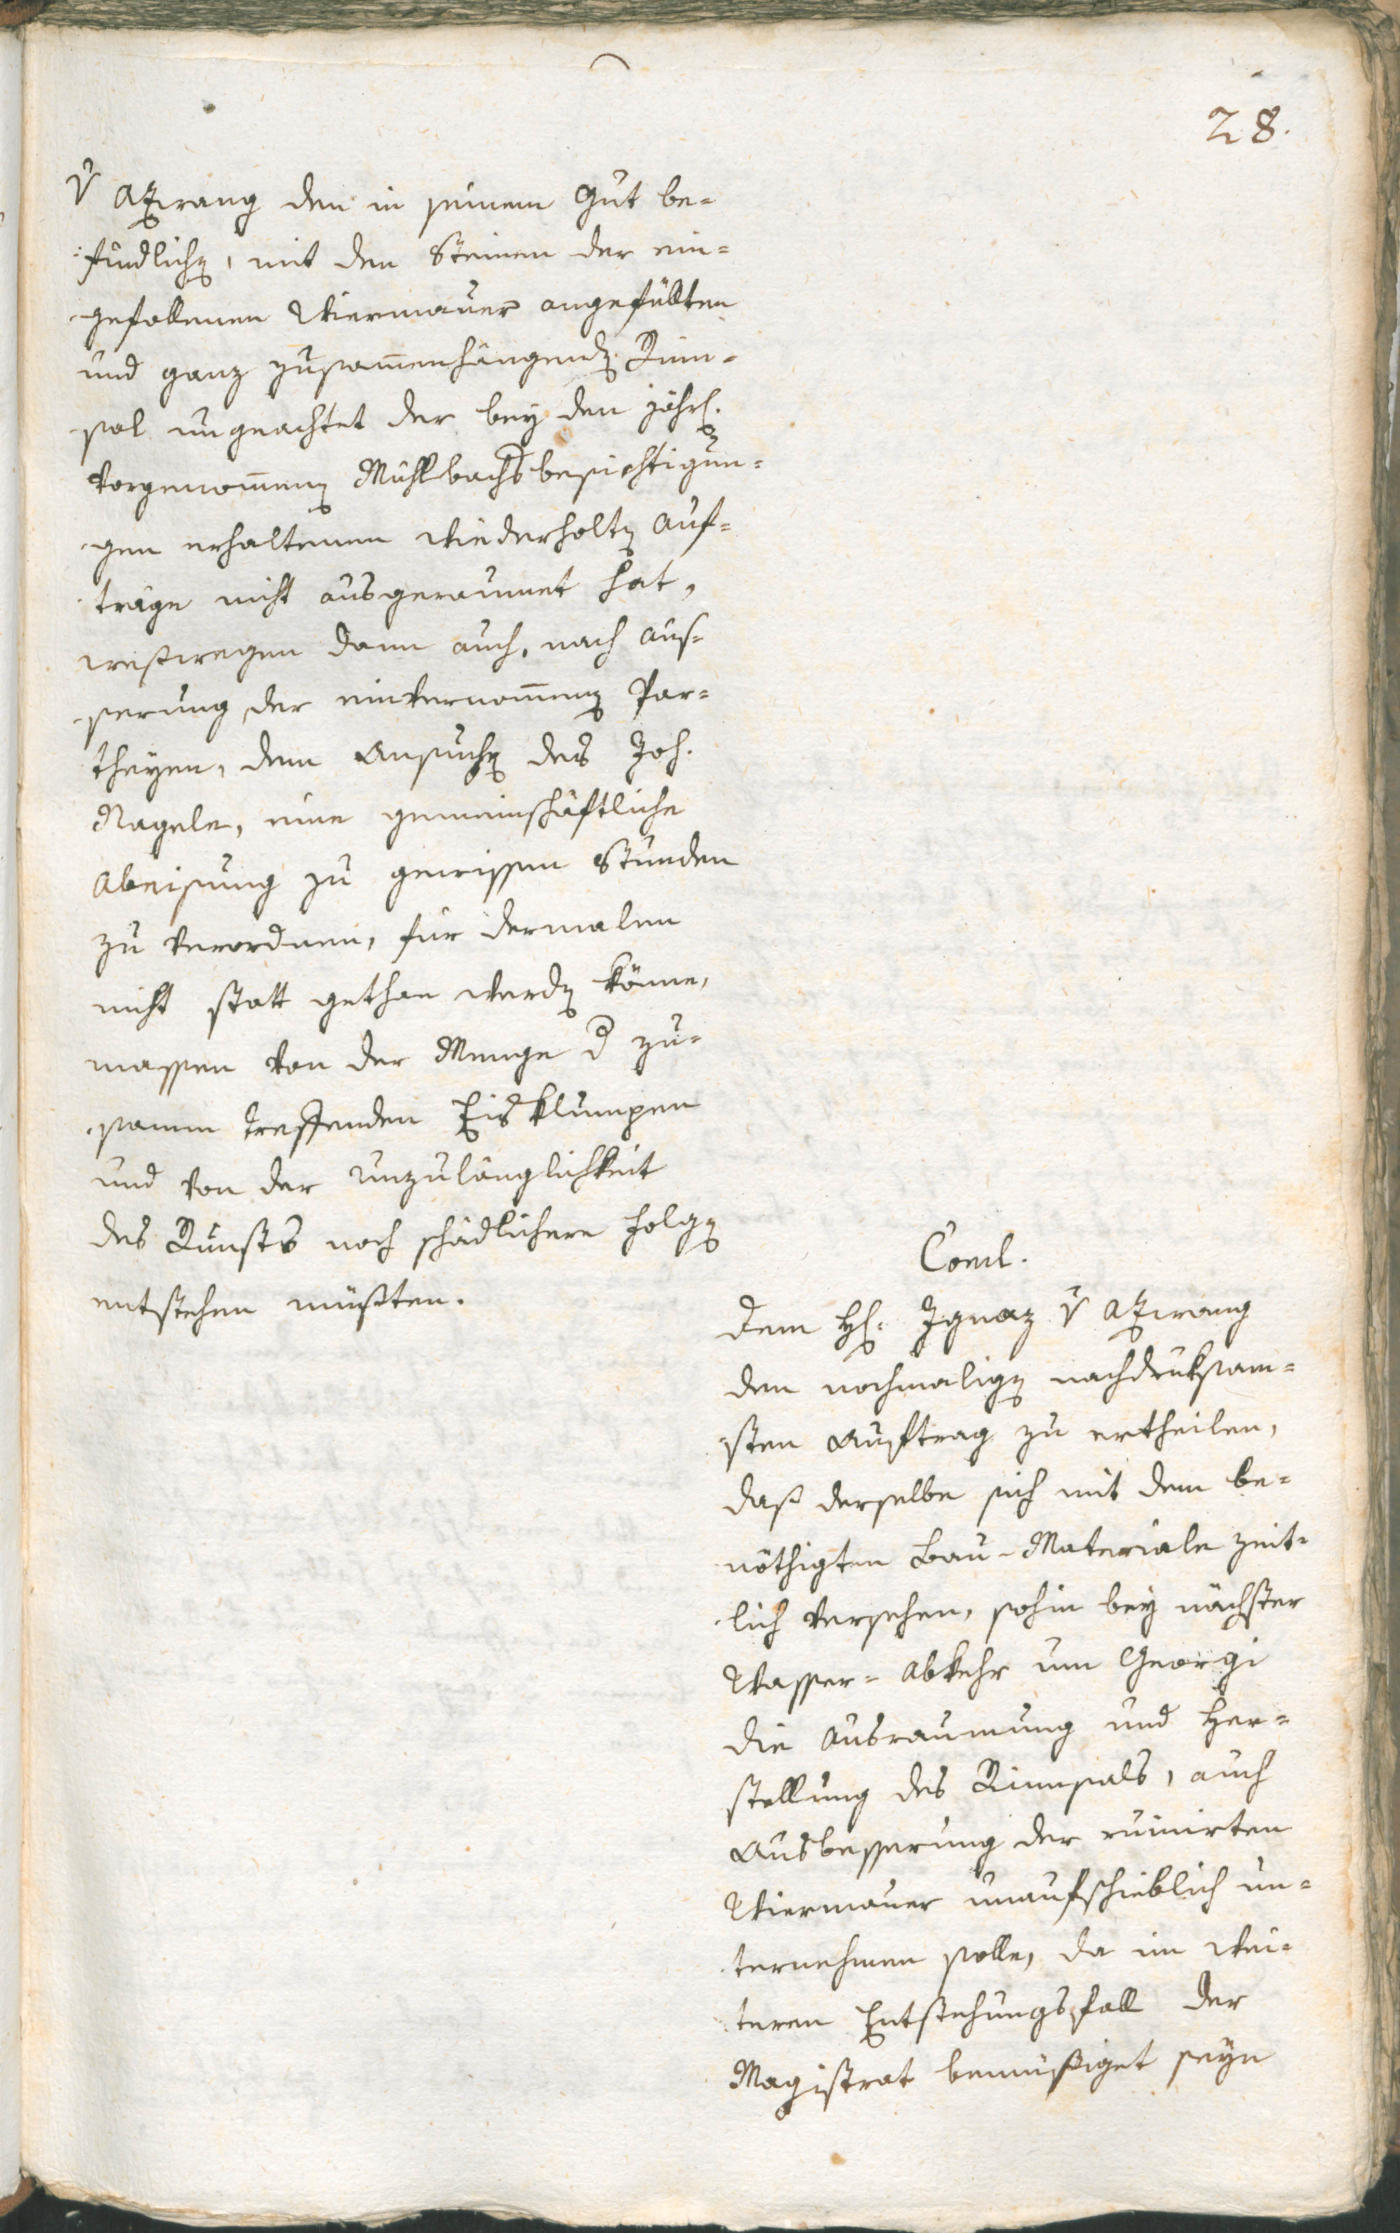 28.
v Atzwang den in seinem Gut be=
findlichen, mit den Steinen der ein=
gefallenen Wiermauer angefüllten
und ganz zusammenhängenden Rinn=
sal ungeachtet der bey den jährl.
vorgenommenen Mühlbachsbesichtigun=
gen erhaltenen wiederholten Auf=
träge nicht ausgeraumet hat,
weßwegen dann auch, nach Aus=
serung der einvernommenen Par=
theyen, dem Ansuchen des Joh.
Nagele, eine gemeinschäftliche
Abeisung zu gewissen Stunden
zu verordnen, für dermalen
nicht statt gethan werden könne,
massen von der Menge d zu=
samm treffenden Eisklumpen
und von der Unzulänglichkeit
des Runsts noch schädlichere Folgen
entstehen müßten.
Concl.
Dem H. Ignaz v Atzwang
den nochmaligen nachdruksam=
sten Auftrag zu ertheilen,
daß derselbe sich mit dem be=
nöthigten Bau-Materiale zeit=
lich versehen, sohin bey nächster
Wasser=Abkehr um Georgi
die Ausraumung und Her=
stellung des Rinnsals, auch
Ausbesserung der ruinirten
Wiermauer unaufschieblich un=
ternehmen solle, da im wei=
teren Entstehungsfall der
Magistrat bemüßiget seyn